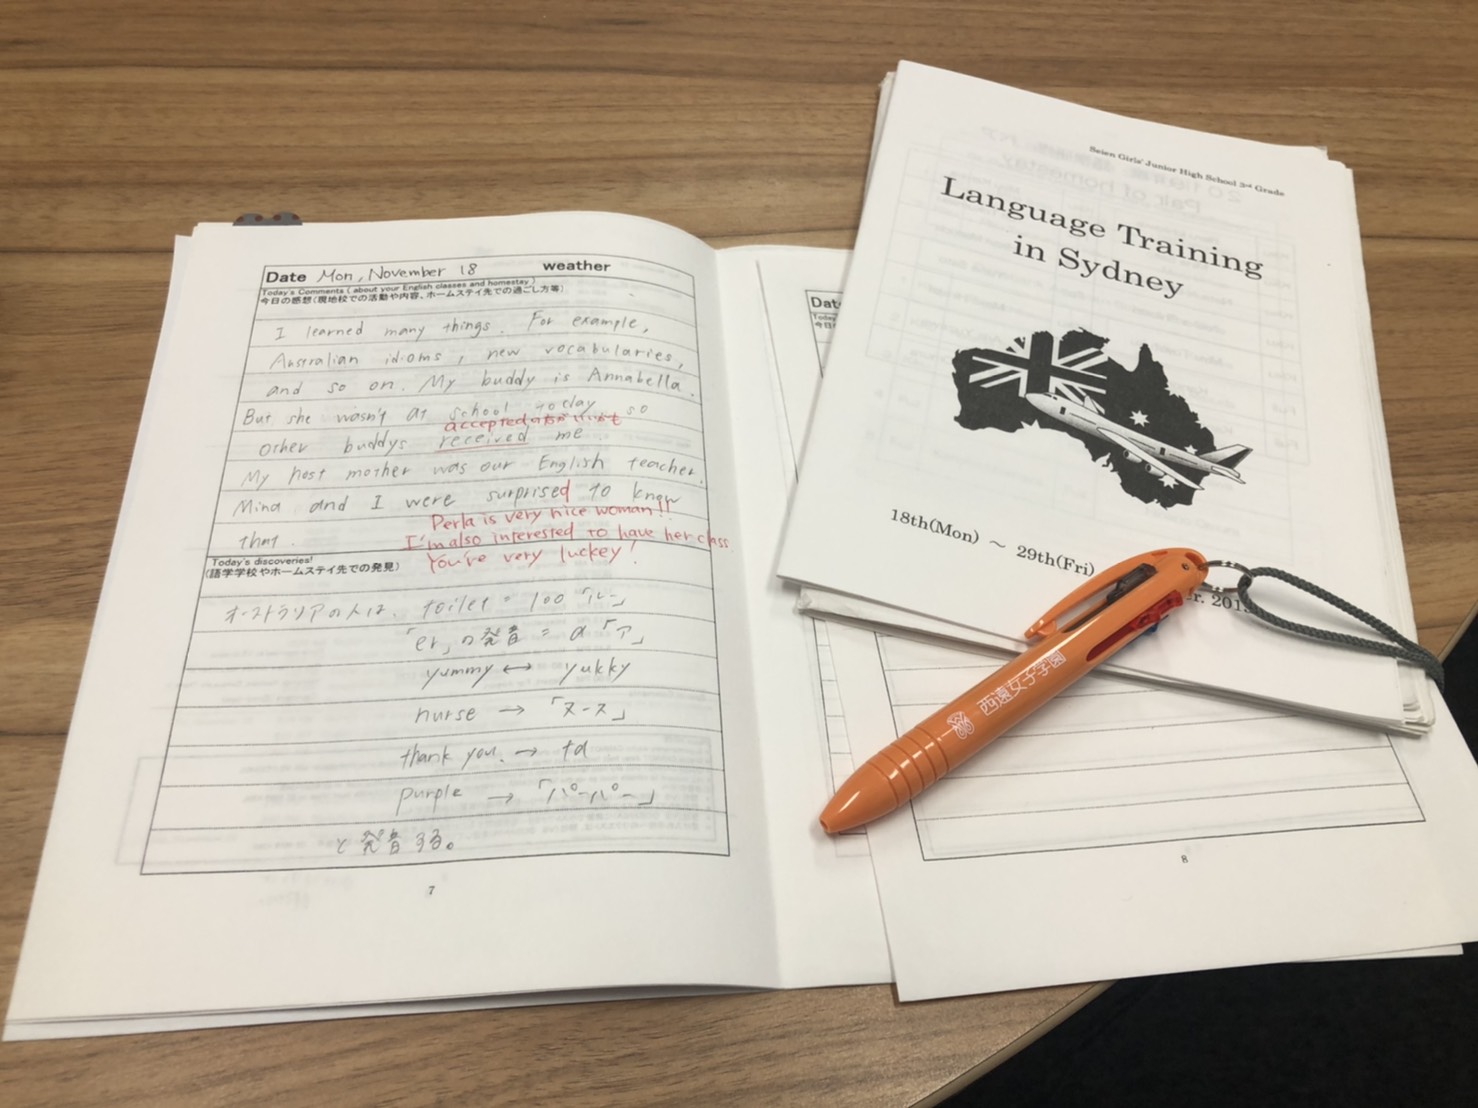 Date Mon, November 18 weather
Today's Comments ( about your English classes and homestay )
今日の感想(現地校での活動や内容、ホームステイ先での過ごし方等)
I learned many things. For example,
Australian idioms, new vocabularies,
and so on. My buddy is Annabella.
But she wasn't at school today so
accepted
other buddys received me.
My host mother was our English teacher.
Mina and I were surprised to know
that.
Perla is very nice woman!!
I'm also interested to have her class.
You're very luckey!
Today's discoveries!
(語学学校やホームステイ先での発見)
オーストラリアの人は、toilet = 100「ルー」
「er」の発音 = a「ア」
yummy ↔ yukky
nurse → 「ヌース」
thank you. → ta
purple → 「パーパー」
と発音する。
7
Seien Girls' Junior High School 3rd Grade
Language Training
in Sydney
18th(Mon) ～ 29th(Fri)
西遠女子学園
8